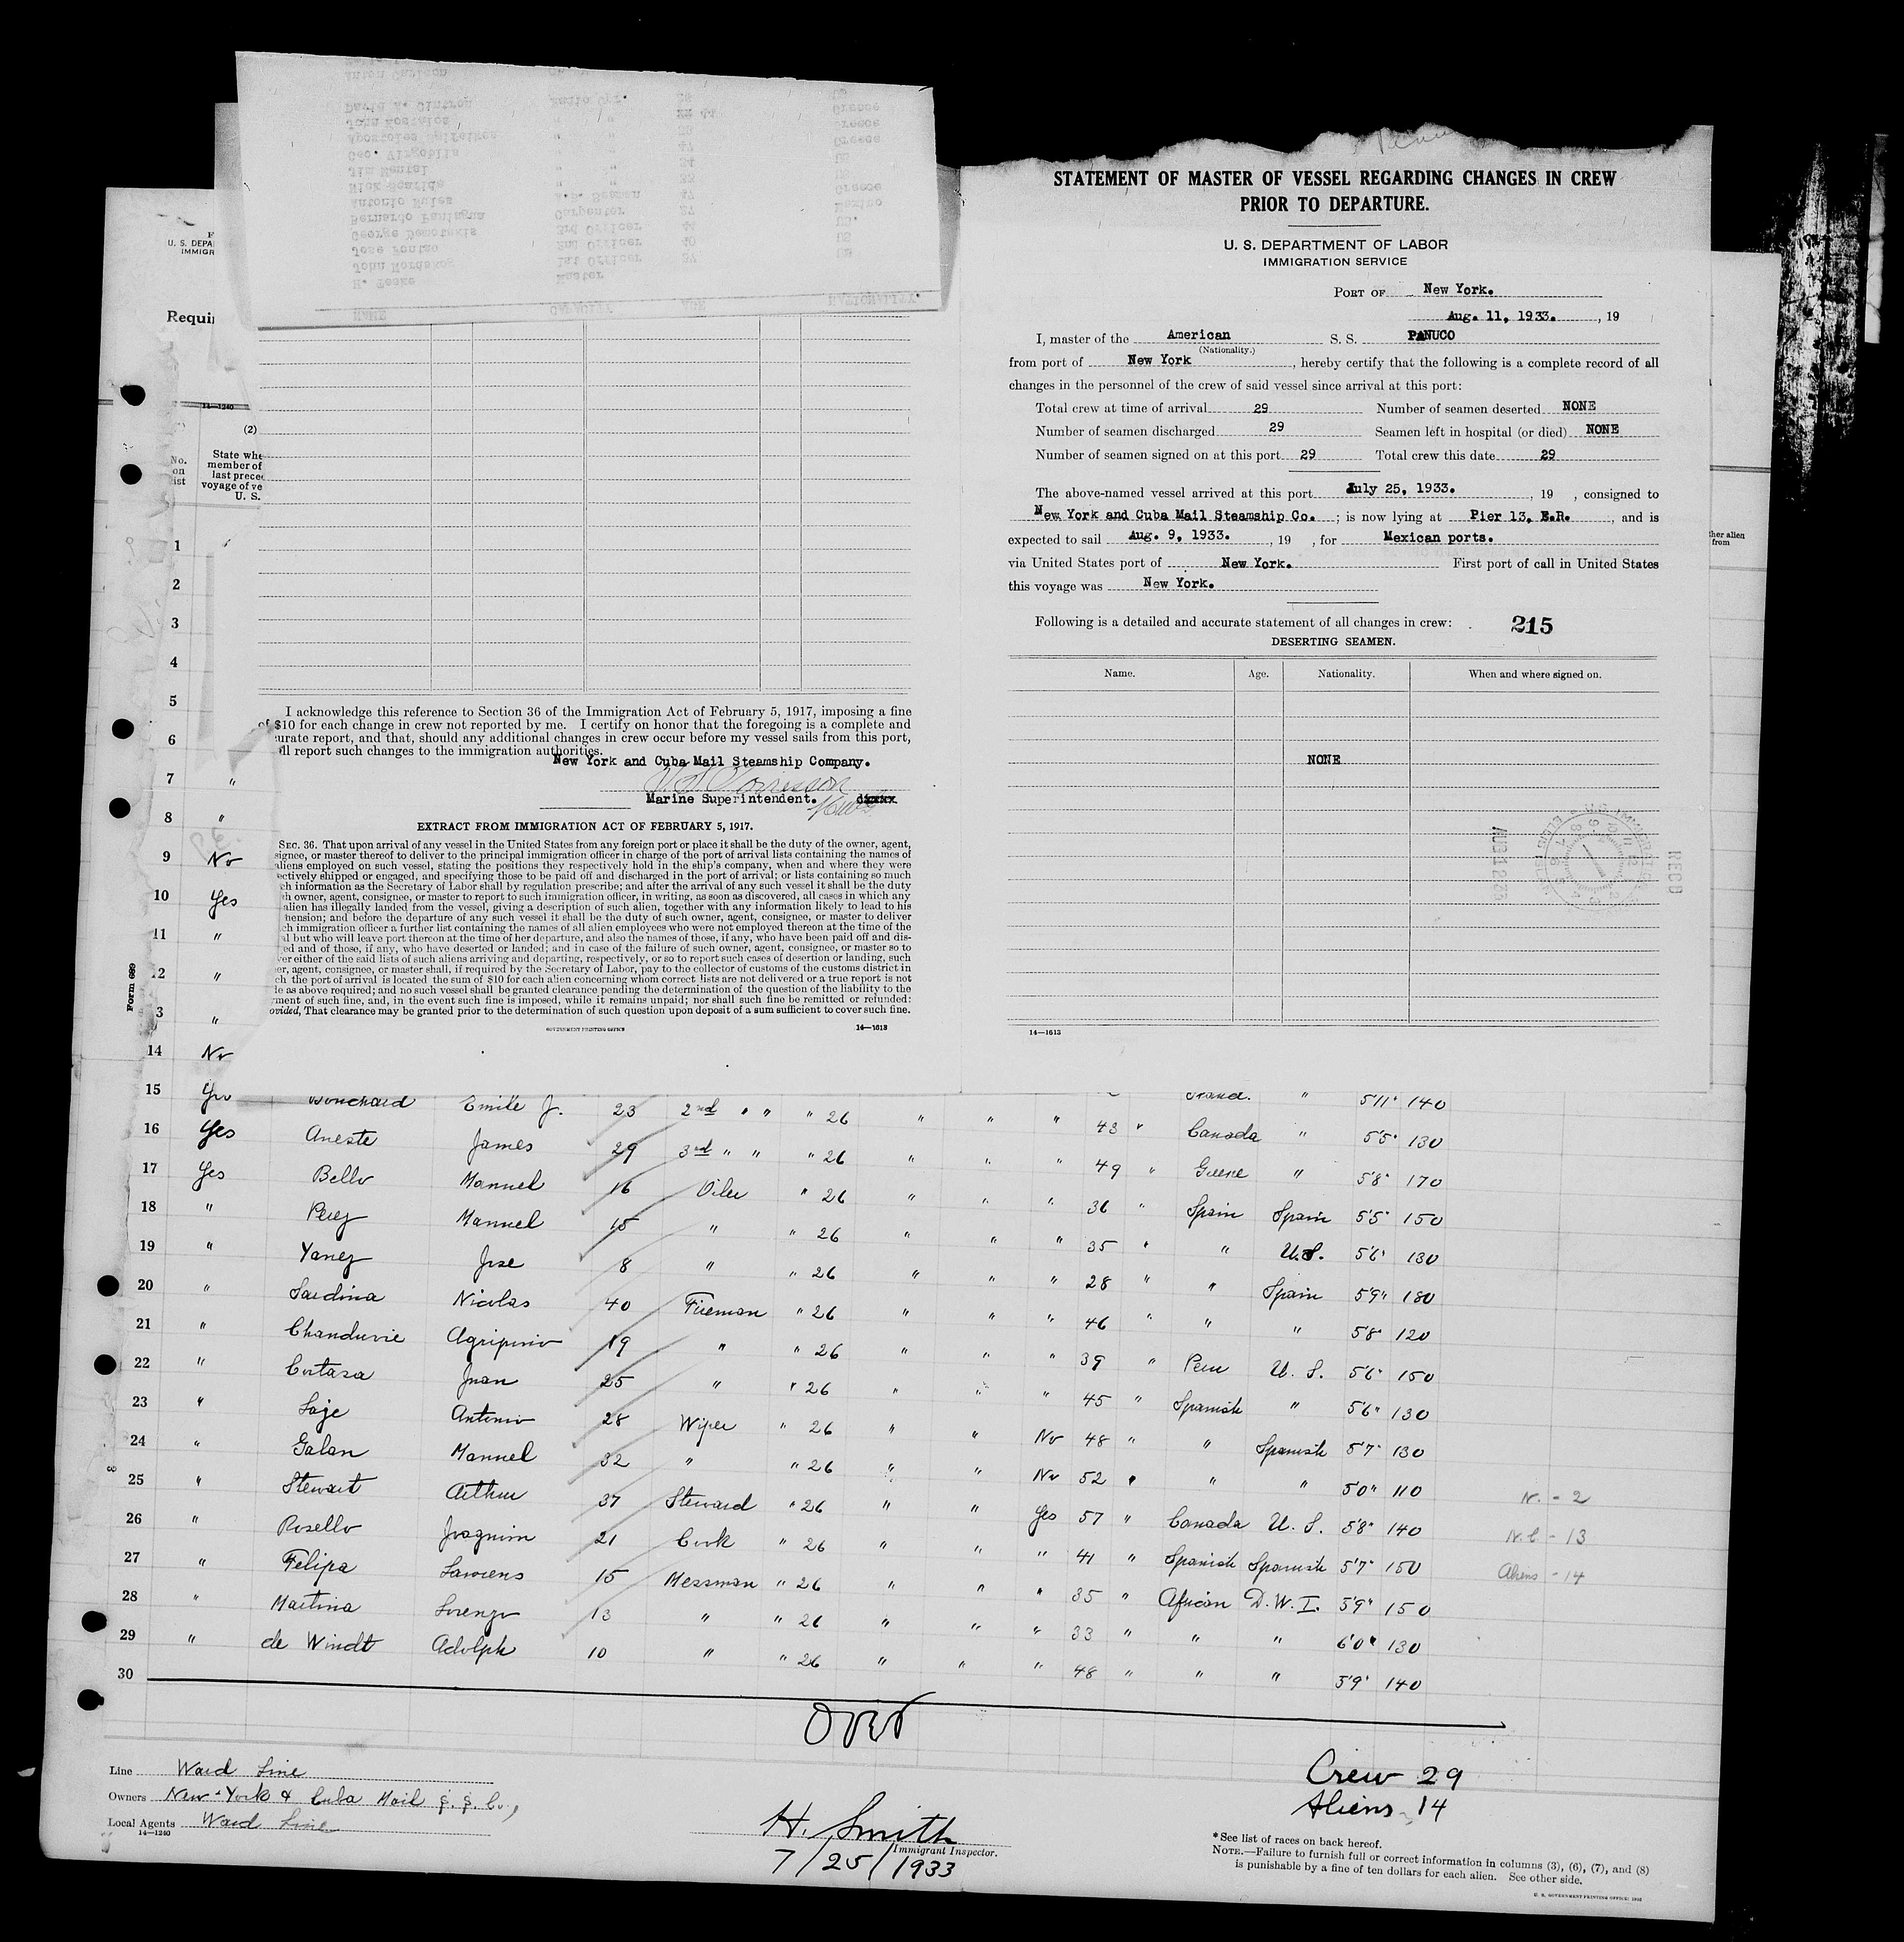 STATEMENT OF MASTER OF VESSEL REGARDING CHANGES IN CREW
PRIOR TO DEPARTURE.
U. S. DEPARTMENT OF LABOR
IMMIGRATION SERVICE
PORT OF New York.
Aug. 11, 1933. , 19
I, master of the American S. S. PANUCO
(Nationality.)
from port of New York , hereby certify that the following is a complete record of all
changes in the personnel of the crew of said vessel since arrival at this port:
Total crew at time of arrival 29 Number of seamen deserted NONE
Number of seamen discharged 29 Seamen left in hospital (or died) NONE
Number of seamen signed on at this port 29 Total crew this date 29
The above-named vessel arrived at this port July 25, 1933. , 19 , consigned to
New York and Cuba Mail Steamship Co. ; is now lying at Pier 13, E.R. , and is
expected to sail Aug. 9, 1933. , 19 , for Mexican ports.
via United States port of New York. First port of call in United States
this voyage was New York.
Following is a detailed and accurate statement of all changes in crew: 215
DESERTING SEAMEN.
Name. Age. Nationality. When and where signed on.
NONE
RECD
AUG 12 33
14—1613
NAME CAPACITY AGE NATIONALITY.
H. Master
John 1st Officer 37 US
Jose 2nd Officer 40 US
George 3rd Officer 44 US.
Bernardo Carpenter 27 Mexico
Antonio 47 Greece
Nick 33
Jim 34 US
Geo. 47 Greece
29 Greece
John Greece
David Radio Opr. 26 US
Anton Carlson
U. S. DEPA
IMMIGR
Requi
14—1240
(2)
No. on list
State whe
member of
last prece
voyage of ve
U. S.
ther alien
from
I acknowledge this reference to Section 36 of the Immigration Act of February 5, 1917, imposing a fine
of $10 for each change in crew not reported by me. I certify on honor that the foregoing is a complete and
urate report, and that, should any additional changes in crew occur before my vessel sails from this port,
ill report such changes to the immigration authorities.
New York and Cuba Mail Steamship Company.
Marine Superintendent.
EXTRACT FROM IMMIGRATION ACT OF FEBRUARY 5, 1917.
SEC. 36. That upon arrival of any vessel in the United States from any foreign port or place it shall be the duty of the owner, agent,
signee, or master thereof to deliver to the principal immigration officer in charge of the port of arrival lists containing the names of
aliens employed on such vessel, stating the positions they respectively hold in the ship's company, when and where they were
ectively shipped or engaged, and specifying those to be paid off and discharged in the port of arrival; or lists containing so much
ch information as the Secretary of Labor shall by regulation prescribe; and after the arrival of any such vessel it shall be the duty
h owner, agent, consignee, or master to report to such immigration officer, in writing, as soon as discovered, all cases in which any
alien has illegally landed from the vessel, giving a description of such alien, together with any information likely to lead to his
hension; and before the departure of any such vessel it shall be the duty of such owner, agent, consignee, or master to deliver
ch immigration officer a further list containing the names of all alien employees who were not employed thereon at the time of the
al but who will leave port thereon at the time of her departure, and also the names of those, if any, who have been paid off and dis-
ed and of those, if any, who have deserted or landed; and in case of the failure of such owner, agent, consignee, or master so to
ver either of the said lists of such aliens arriving and departing, respectively, or so to report such cases of desertion or landing, such
er, agent, consignee, or master shall, if required by the Secretary of Labor, pay to the collector of customs of the customs district in
ch the port of arrival is located the sum of $10 for each alien concerning whom correct lists are not delivered or a true report is not
le as above required; and no such vessel shall be granted clearance pending the determination of the question of the liability to the
ment of such fine, and, in the event such fine is imposed, while it remains unpaid; nor shall such fine be remitted or refunded:
ovided, That clearance may be granted prior to the determination of such question upon deposit of a sum sufficient to cover such fine.
GOVERNMENT PRINTING OFFICE 14—1613
Form 689
1
2
3
4
5
6
7 "
8 "
9 No
10 Yes
11 "
12 "
3 "
14 No
15 Yes Bouchard Emile J. 23 2nd " " " 26 " " " 43 " Canada " 5'5" 130
16 Yes Aneste James 29 3rd " " " 26 " " " 49 " Greece " 5'8" 170
17 Yes Bello Manuel 16 Oiler " 26 " " " 36 " Spain Spain 5'5" 150
18 " Perez Manuel 15 " " 26 " " " 35 " " U.S. 5'6" 130
19 " Yanez Jose 8 " " 26 " " " 28 " " Spain 5'9" 180
20 " Sardina Nicolas 40 Fireman " 26 " " " 46 " " " 5'8" 120
21 " Chanduvie Agripino 19 " " 26 " " " 39 " Peru U. S. 5'6" 150
22 " Cortaza Juan 25 " " 26 " " " 45 " Spanish " 5'6" 130
23 " Laje Antonio 28 Wiper " 26 " " No 48 " " Spanish 5'7" 130
24 " Galan Manuel 32 " " 26 " " No 52 " " " 5'0" 110
25 " Stewart Arthur 37 Steward " 26 " " Yes 57 " Canada U. S. 5'8" 140
26 " Rosello Joaquim 21 Cook " 26 " " " 41 " Spanish Spanish 5'7" 150
27 " Felipa Lawrens 15 Messman " 26 " " " 35 " African D. W. I. 5'9" 150
28 " Martina Lorenzo 13 " " 26 " " " 33 " " " 6'0" 130
29 " de Windt Adolph 10 " " 26 " " " 48 " " " 5'9" 140
30
5'11" 140
N. - 2
N.C - 13
Aliens - 14
OVER
Line Ward Line
Owners New-York & Cuba Mail S. S. Co.,
Local Agents Ward Line
14—1240
H. Smith
Immigrant Inspector.
7/25/1933
Crew 29
Aliens 14
*See list of races on back hereof.
NOTE.—Failure to furnish full or correct information in columns (3), (6), (7), and (8)
is punishable by a fine of ten dollars for each alien. See other side.
U. S. GOVERNMENT PRINTING OFFICE: